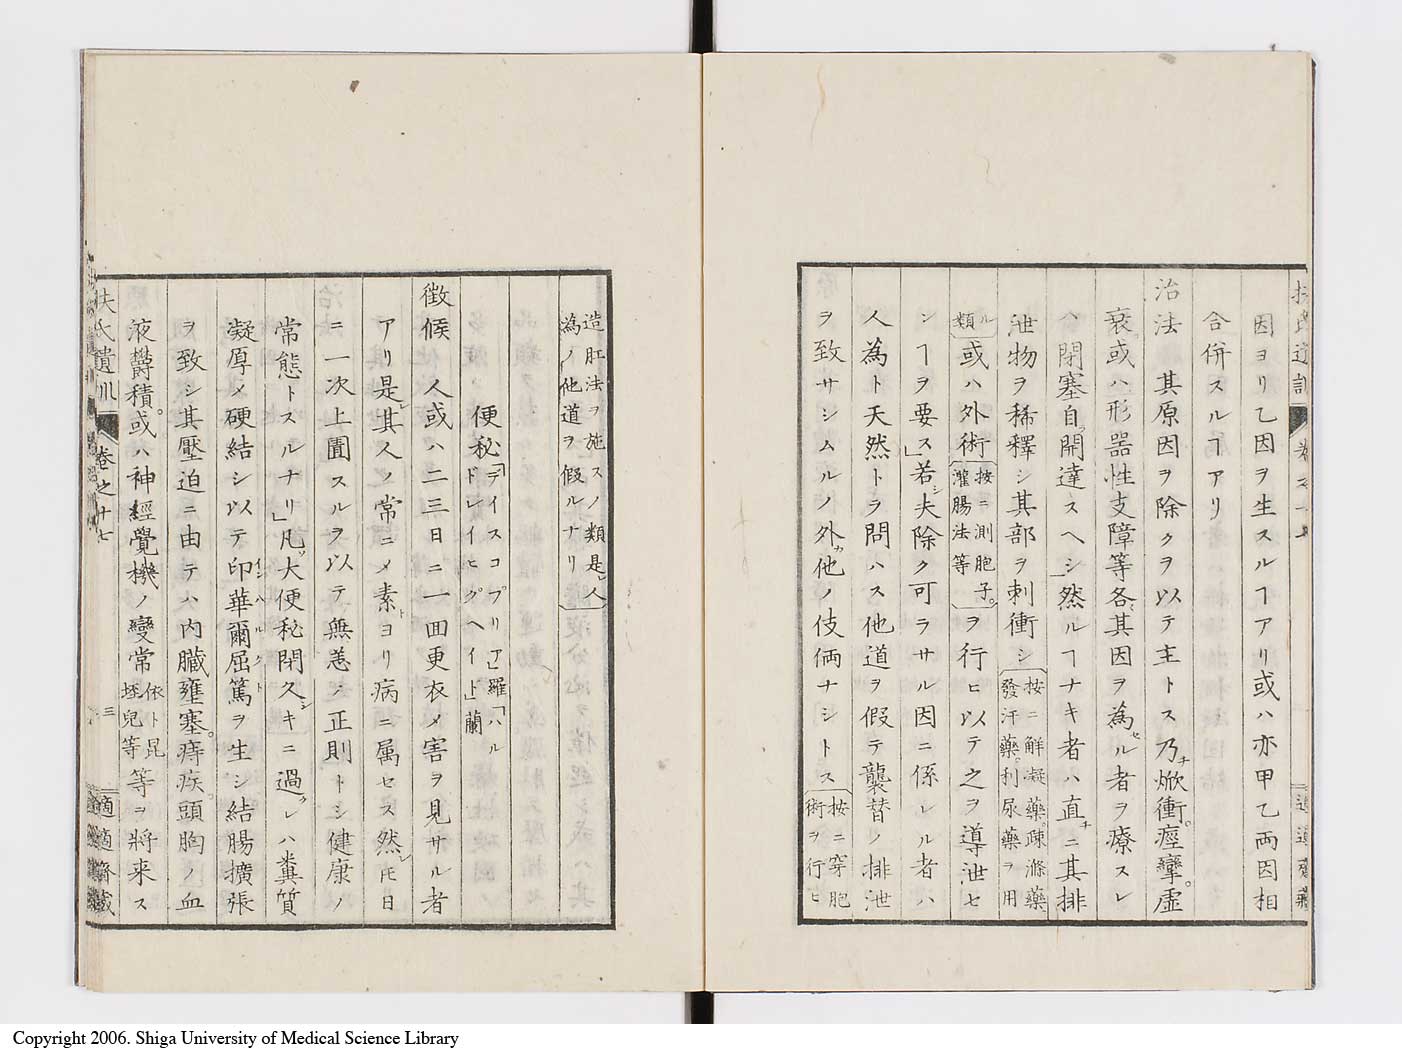 因ヨリ乙因ヲ生スルヿアリ或ハ亦甲乙両因相
合併スルヿアリ
治法　其原因ヲ除クヲ以テ主トス乃チ焮衝。痙攣。虚
衰。或ハ形器性支障等各其因ヲ為セル者ヲ療スレ
ハ閉塞自ラ開達スヘシ」然ルヿナキ者ハ直チニ其排
泄物ヲ稀釋シ其部ヲ刺衝シ
按ニ解凝藥。疎滌藥。
發汗藥。利尿藥ヲ用
ル
類
或ハ外術
按ニ測胞子。
灌腸法等
ヲ行ヒ以テ之ヲ導泄セ
シヿヲ要ス」若シ夫除ク可ラサル因ニ係レル者ハ
人為ト天然トヲ問ハス他道ヲ假テ襲替ノ排泄
ヲ致サシムルノ外他ノ伎倆ナシトス
按ニ穿胞
術ヲ行ヒ
造肛法ヲ施スノ類是レ人
為ノ他道ヲ假ルナリ
便秘
「デイスコプリア」羅「ハル
ドレイヒグヘイト」蘭
徴候　人或ハ二三日ニ一回更衣メ害ヲ見サル者
アリ是レ其人ノ常ニメ素ヨリ病ニ属セス然レ𪜈日
ニ一次上圊スルヲ以テ無恙ノ正則トシ健康ノ
常態トスルナリ」凡ソ大便秘閉久シキニ過クレハ糞質
凝厚メ硬結シ以テ印華爾屈篤ヲ生シ結腸擴張
インハルクト
ヲ致シ其壓迫ニ由テハ内臓壅塞。痔疾。頭胸ノ血
液欝積。或ハ神經覺機ノ變常
依卜昆
垤兒等
等ヲ將来ス
扶氏遺訓
卷之十七
三
適適齋藏